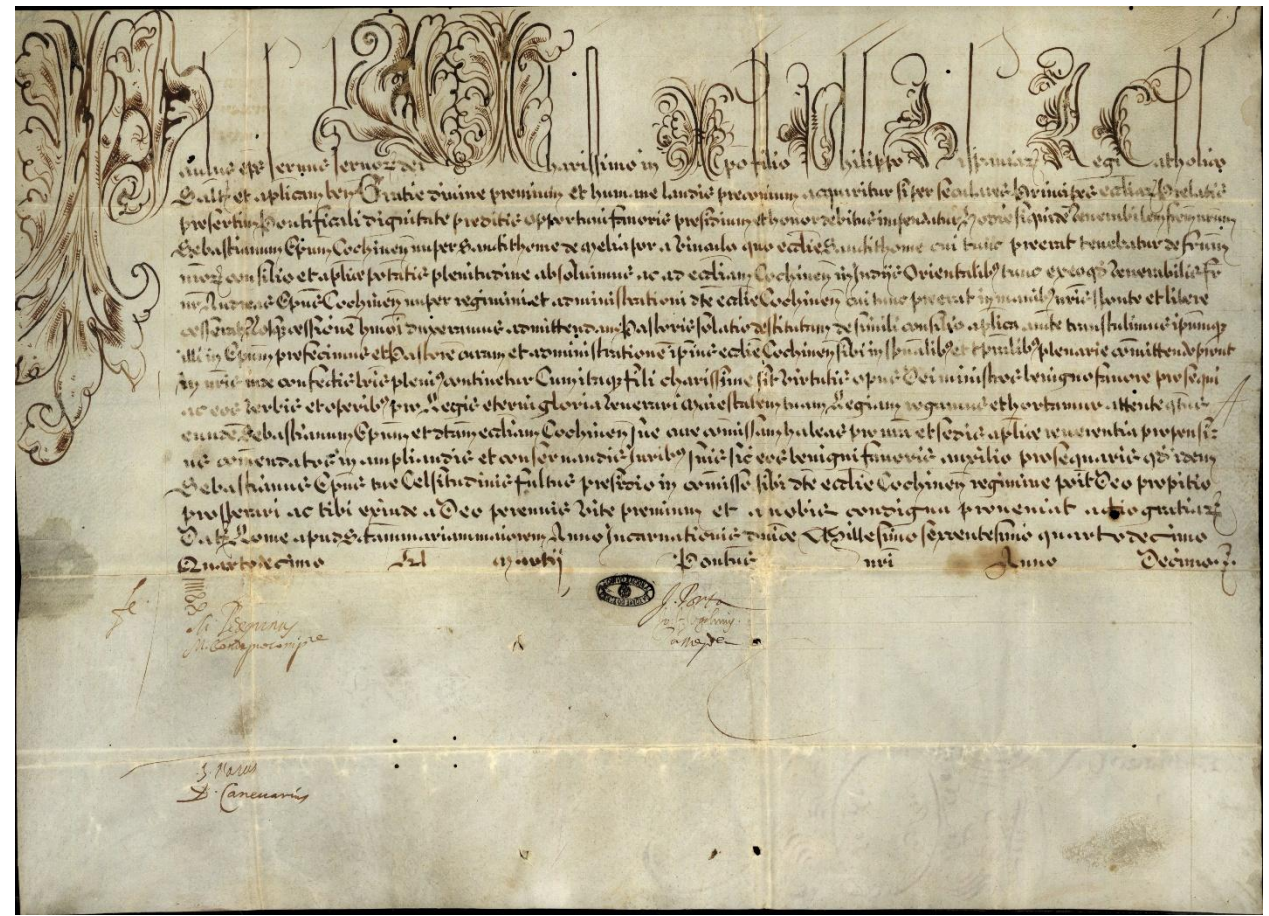 Paulus eps servus servor dei Charissimo in Xpo filio Philippo Hispaniar Regi Catholico
Salt et aplicam ben Gratie divine premium et humane laudis preconium acquiritur si per seculares Principes eccliar Prelatis
presertim Pontificali dignitate preditis opportuni favoris presidium et honor debitus impendatur Hodie siquidem Venerabilem frem nrum
Sebastianum Epum Cochinen nuper Sancti Thome de Meliapor a vinculo quo ecclie Sancti Thome cui tunc preerat tenebatur de frum
nror consilio et aplice potatis plenitudine absolvimus ac ad eccliam Cochinen in Indijs Orientalibus tunc ex eo qd Venerabilis fr
nr Andreas Epus Cochinen nuper regimini et administrationi dte ecclie Cochinen cui tunc preerat in manibus nris sponte et libere
cesserat Nosq cessionem hmoi duxeramus admittendam Pastoris solatio destitutam de simili consilio aplica aucte transtulimus ipsumq
illi in Epum prefecimus et Pastorem curam et administrationem ipsius ecclie Cochinen sibi in spualibus et tpralibus plenarie comittendo prout
in nris inde confectis lris plenius continetur Cum itaq fili charissime sit virtutis opus Dei ministros benigno favore prosequi
ac eos verbis et operibus pro Regis eterni gloria venerari Maiestatem tuam Regiam rogamus et hortamur attente qtus
eundem Sebastianum Epum et dtam eccliam Cochinen sue cure comissam habeas pro nra et sedis aplice reverentia propensi-
us comendatos in ampliandis et conservandis Juribus suis sic eos benigni favoris auxilio prosequaris qd idem
Sebastianus Epus tue Celsitudinis fultus presidio in comisso sibi dte ecclie Cochinen regimine possit Deo propitio
prosperari ac tibi exinde a Deo perennis vite premium et a nobis condigna proveniat actio gratiar
Dat Rome apud Sctam mariam maiorem Anno Incarnationis dnice Millesimo sexcentesimo quartodecimo
Quartodecimo Kl Martij Pontus nri Anno Decimo
J. Porta
D. Canevarius